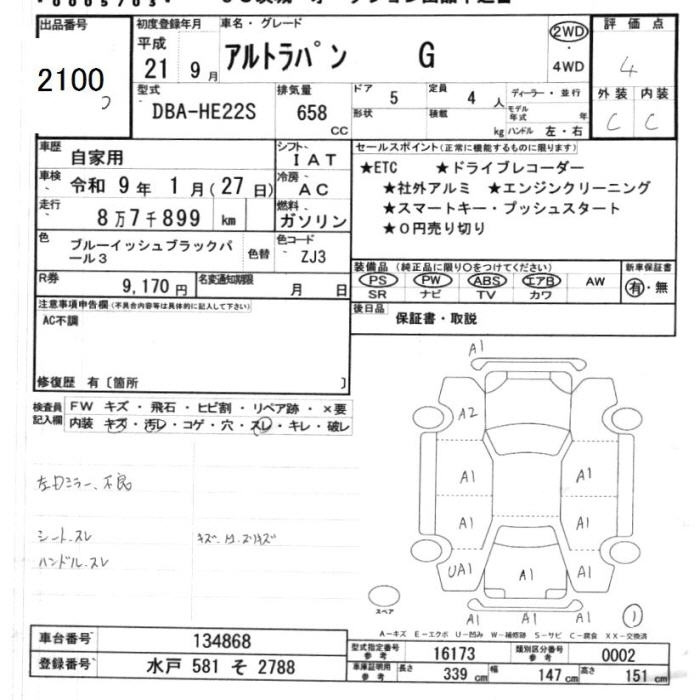 出品番号
2100
初度登録年月
平成
21 9月
車名・グレード
アルトラパン G
2WD
・
4WD
評価点
4
外装 内装
C C
型式
DBA-HE22S
排気量
658
CC
ドア
5
定員
4 人
ディーラー・並行
形状
積載
kg
モデル年式 年
ハンドル 左・右
車歴
自家用
シフト
IAT
車検
令和 9年 1月(27日)
冷房
AC
走行
8万7千899 km
燃料
ガソリン
セールスポイント(正常に機能するものに限ります)
★ETC ★ドライブレコーダー
★社外アルミ ★エンジンクリーニング
★スマートキー・プッシュスタート
★0円売り切り
色
ブルーイッシュブラックパール3
色替
色コード
ZJ3
R券
9,170円
名変通知期限
月 日
装備品 (純正品に限り○をつけてください)
PS PW ABS エアB AW
SR ナビ TV カワ
新車保証書
有・無
後日品
保証書・取説
注意事項申告欄(不具合内容等は具体的に記入して下さい)
AC不調
修復歴 有〔箇所 〕
検査員
記入欄
FW キズ・飛石・ヒビ割・リペア跡・×要
内装 キズ・汚レ・コゲ・穴・スレ・キレ・破レ
シートスレ
ハンドルスレ
A1
A2
A1 A1
A1 A1
UA1 A1 A1
A1 A1 A1
1
スペア
A-キズ E-エクボ U-凹み W-補修跡 S-サビ C-腐食 XX-交換済
車台番号
134868
登録番号
水戸 581 そ 2788
型式指定番号
参考
16173
類別区分番号
参考
0002
車庫証明用
参考
長さ 339 cm
幅 147 cm
高さ 151 cm